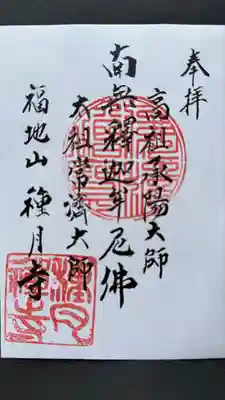 奉拝
高祖承陽大師
南無釋迦牟尼佛
太祖常濟大師
福地山種月寺